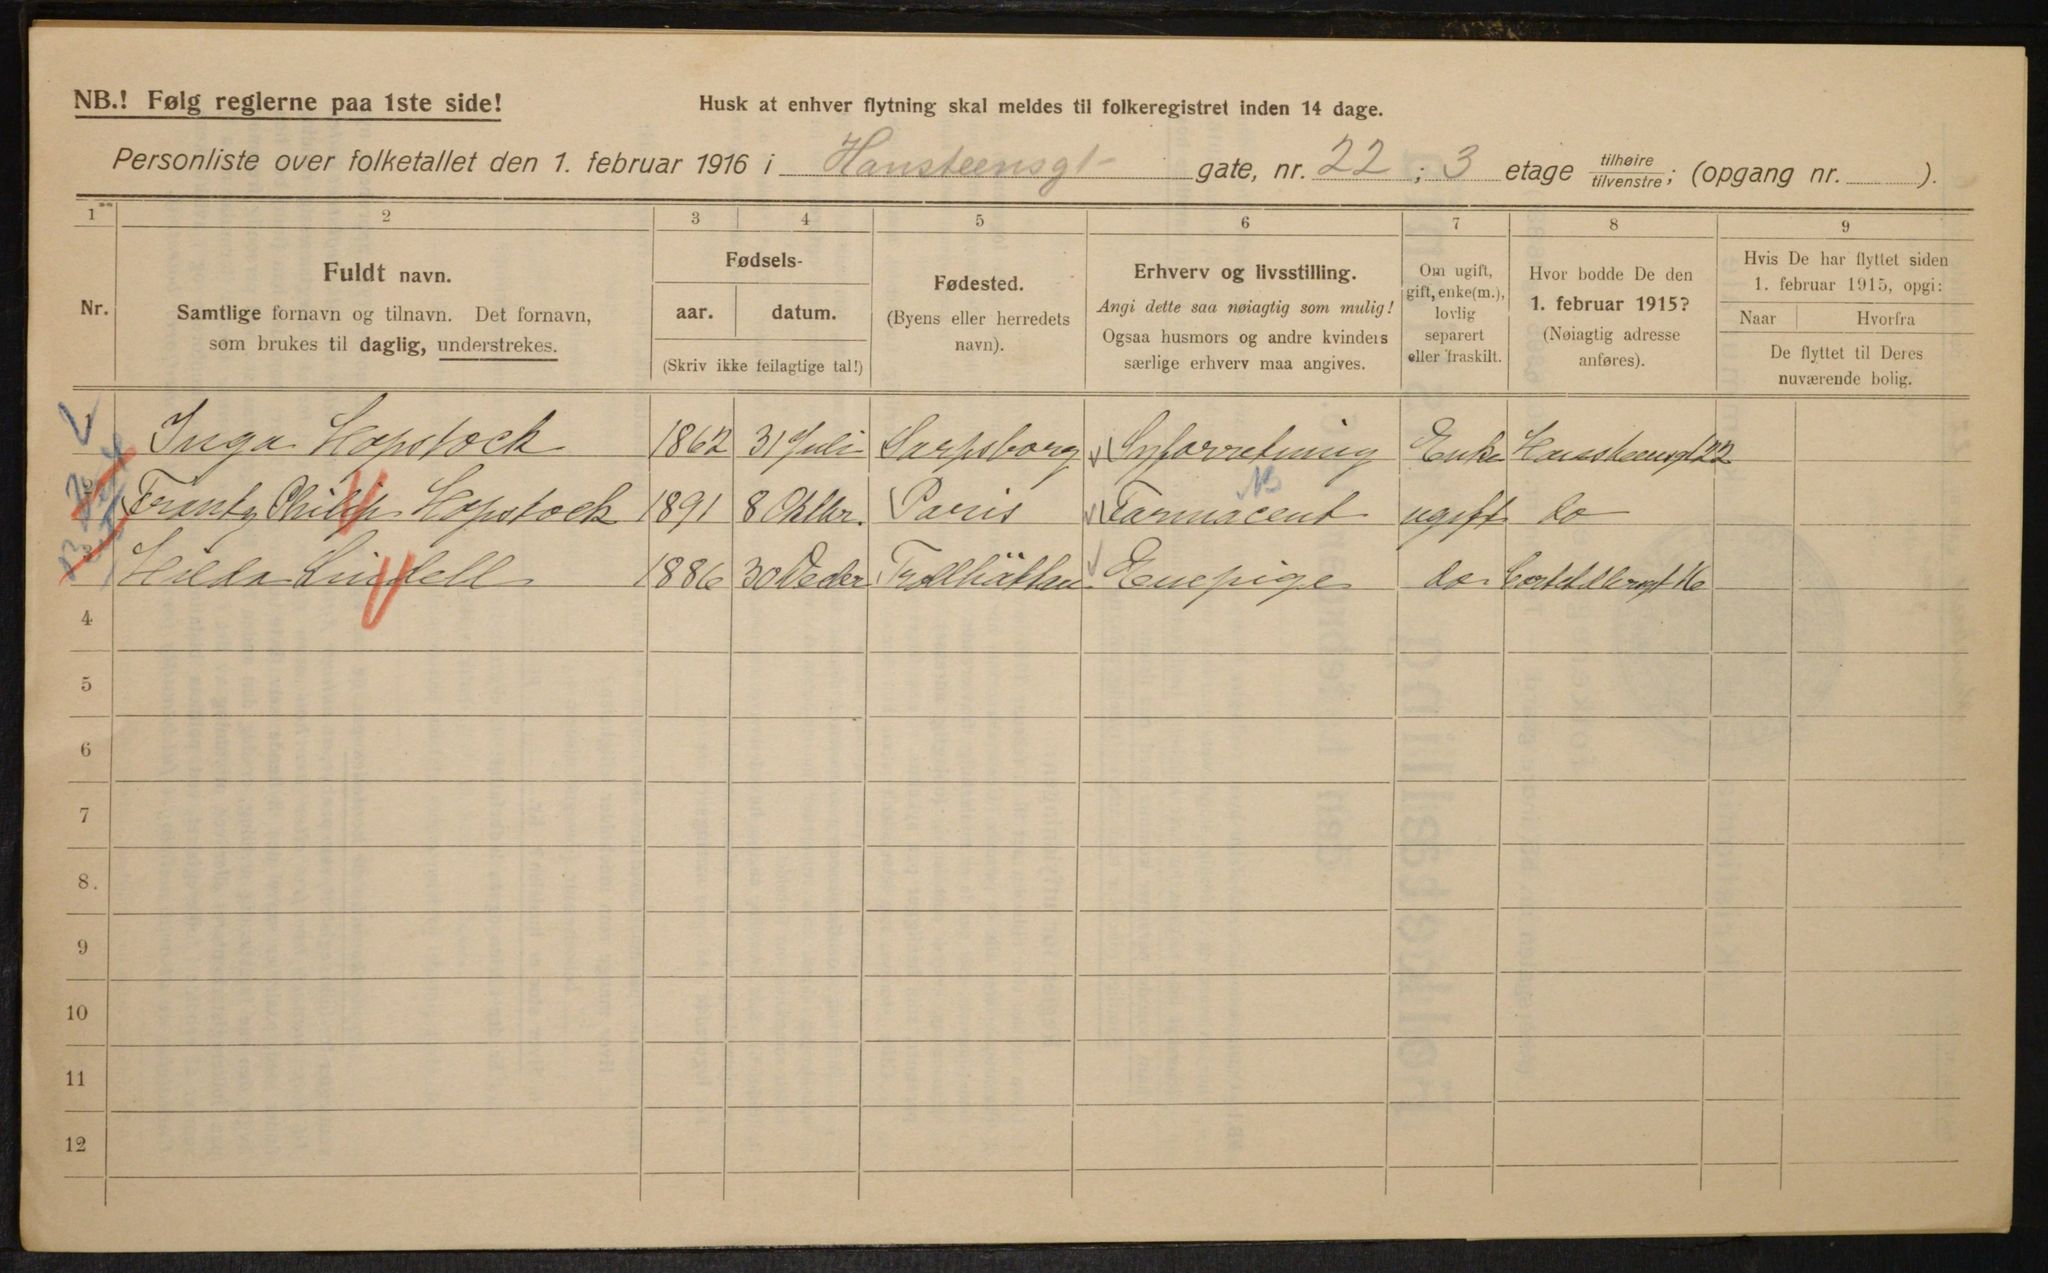 NB.! Følg reglerne paa 1ste side!
Husk at enhver flytning skal meldes til folkeregistret inden 14 dage.
Personliste over folketallet den 1. februar 1916 i Hansteensgt gate, nr. 22 ; 3 etage tilhøire/tilvenstre; (opgang nr. ).
1 2 3 4 5 6 7 8 9
Nr.
Fuldt navn.
Samtlige fornavn og tilnavn. Det fornavn,
som brukes til daglig, understrekes.
Fødsels-
aar. datum.
(Skriv ikke feilagtige tal!)
Fødested.
(Byens eller herredets
navn).
Erhverv og livsstilling.
Angi dette saa nøiagtig som mulig!
Ogsaa husmors og andre kvinders
særlige erhverv maa angives.
Om ugift,
gift, enke(m.),
lovlig
separert
eller fraskilt.
Hvor bodde De den
1. februar 1915?
(Nøiagtig adresse
anføres).
Hvis De har flyttet siden
1. februar 1915, opgi:
Naar Hvorfra
De flyttet til Deres
nuværende bolig.
1 Inga Hopstock 1862 31 Juli Sarpsborg Syforretning Enke Hansteensgt 22
Frantz Philip Hopstock 1891 8 Oktbr. Paris Farmaceut ugift do
Hilda Lindell 1886 30 Decbr Trollhättan Enepige do
4
5
6
7
8.
9
10
11
12